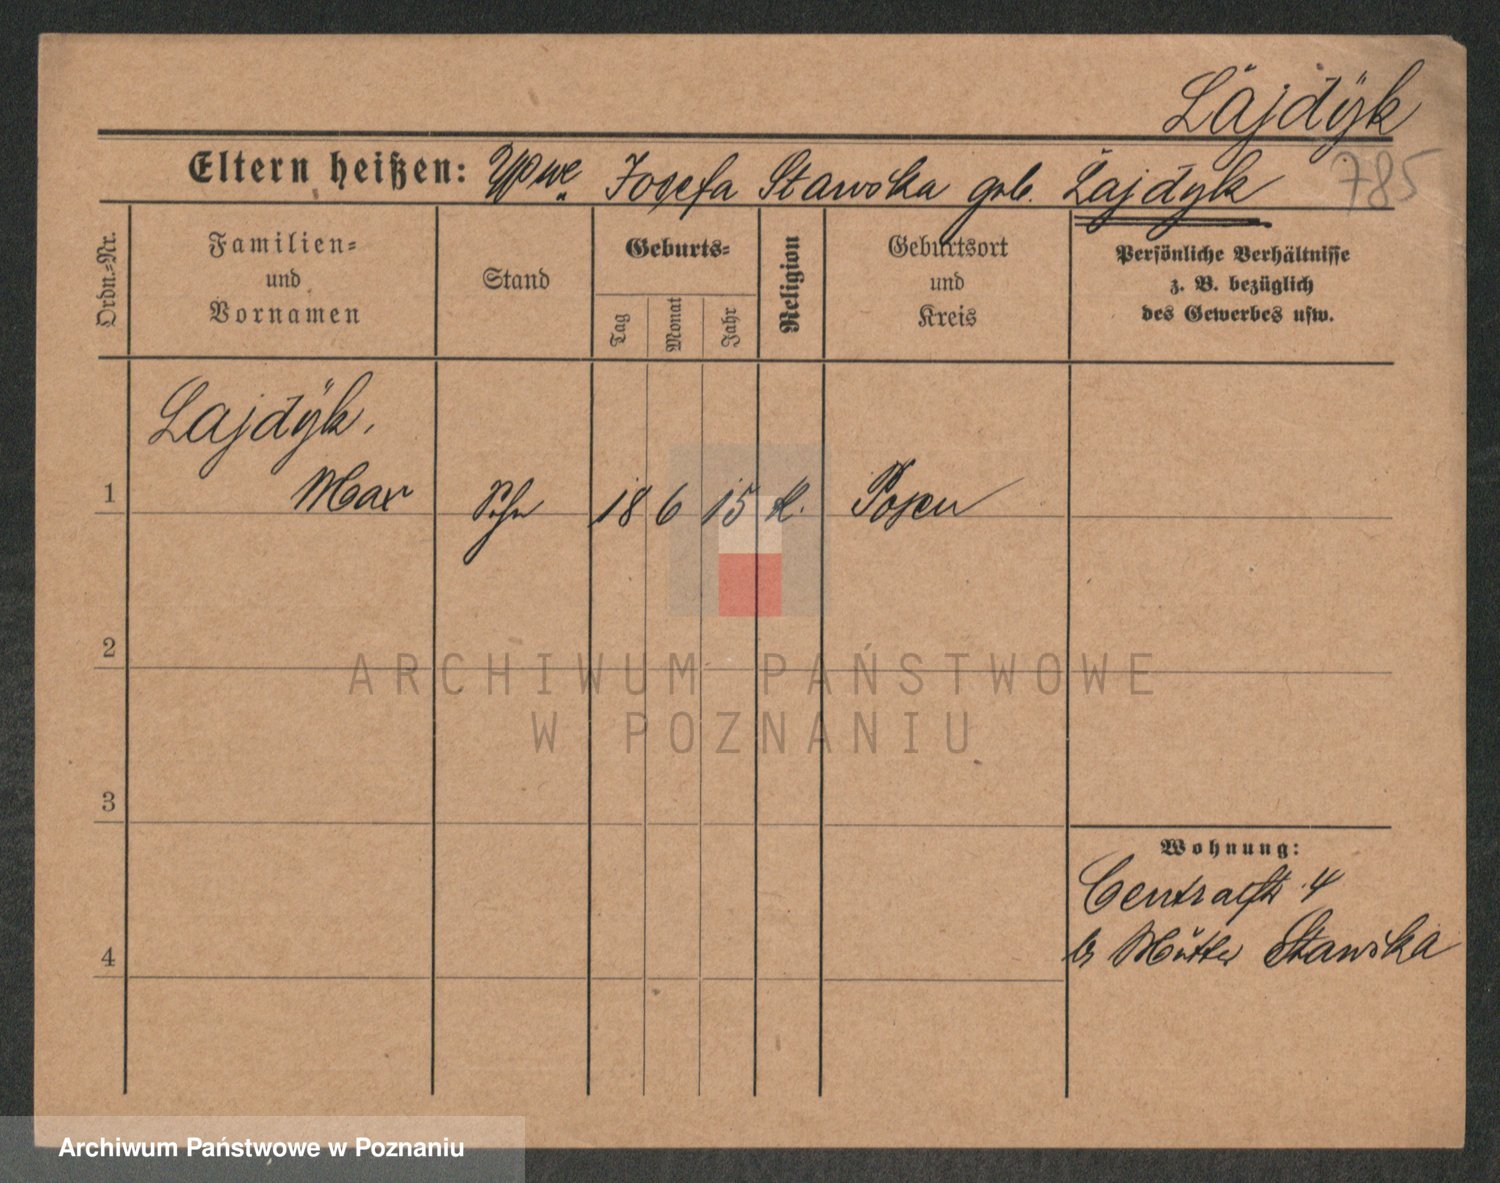 Lajdÿk
785
Eltern heißen: Wwe. Josefa Stawska geb. Lajdyk
Ordn.-Nr.
Familien-
und
Vornamen
Stand
Geburts-
Tag
Monat
Jahr
Religion
Geburtsort
und
Kreis
Persönliche Verhältnisse
z. B. bezüglich
des Gewerbes usw.
Lajdÿk,
1 Max Sohn 18 6 15 k. Posen
2
ARCHIWUM PAŃSTWOWE
W POZNANIU
3
Wohnung:
Centralstr. 4
b Mutter Stawska
4
Archiwum Państwowe w Poznaniu